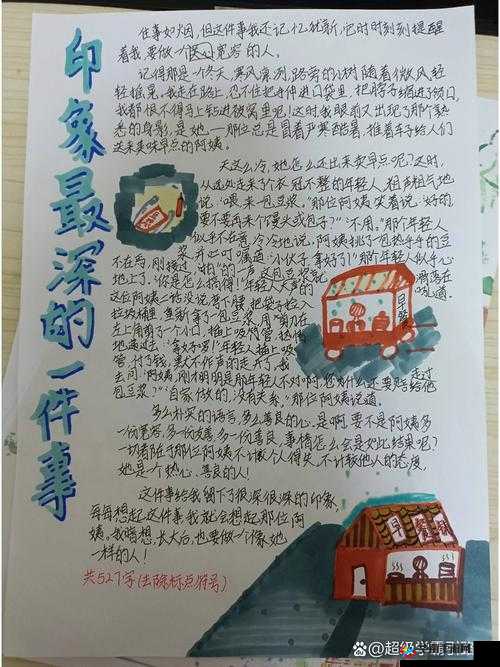 印象最深的一件事
往事如烟,但这件事我还记忆犹新,它时时刻刻提醒
着我,要做一个宽容的人。
记得那是一个冬天,寒风凛冽,路旁的小树随着微风轻
轻摇晃。我走在路上,也不住将手伸进口袋里,把脖子缩进领口,
我都恨不得马上钻进被窝里呢!这时,我眼前又出现了那个熟
悉的身影,是她,一那位总是冒着严寒酷暑,推着车子给人们
送来美味早点的阿姨。
天这么冷,她怎么还出来卖早点呢?这时,
从远处走来了个衣冠不整的年轻人,粗声粗气地
说:“喂,来一包豆浆。”那位阿姨笑着说:“好的
要不要再来个馒头或包子?”“不用。”那个年轻人
似乎不在意,冷冷地说,阿姨挑了一包热乎乎的豆
浆,并叮嘱道:“小伙子,拿好了!”那个年轻人似乎心
不在焉,刚接过,“啪”的一声,这包豆浆就滴落在
地上了,“你是怎么搞得!”年轻人大声的吼道。
这位阿姨二话没说,弯下腰,把袋子捡入
垃圾桶,重新拿了包豆浆,用剪刀在
左上角剪了一个小口,插上吸管,热情
地递过去:“拿好了哦!”年轻人插上吸
管,付了钱,默不作声的走开了,我走过
去问:“阿姨,刚才明明是那年轻人不对啊,您为什么还要陪给他
包豆浆?”“自家做的,没有关系。”那位阿姨说道。
多么朴实的语言,多么善良的心,是啊,要不是阿姨多
一份宽容,多一份友善,多一份善良,事情怎么会是如此结果呢?
一切都在于那位阿姨不计较个人得失,不计较他人的态度,
她是个热心、善良的人!
这件事给我留下了很深很深的印象,
每每想起这件事,我就会想起那位阿
姨。我暗想,长大后,也要做一个像她
一样的人!
共527字(去除标点符号)
早餐
早餐铺
@超级学霸引路